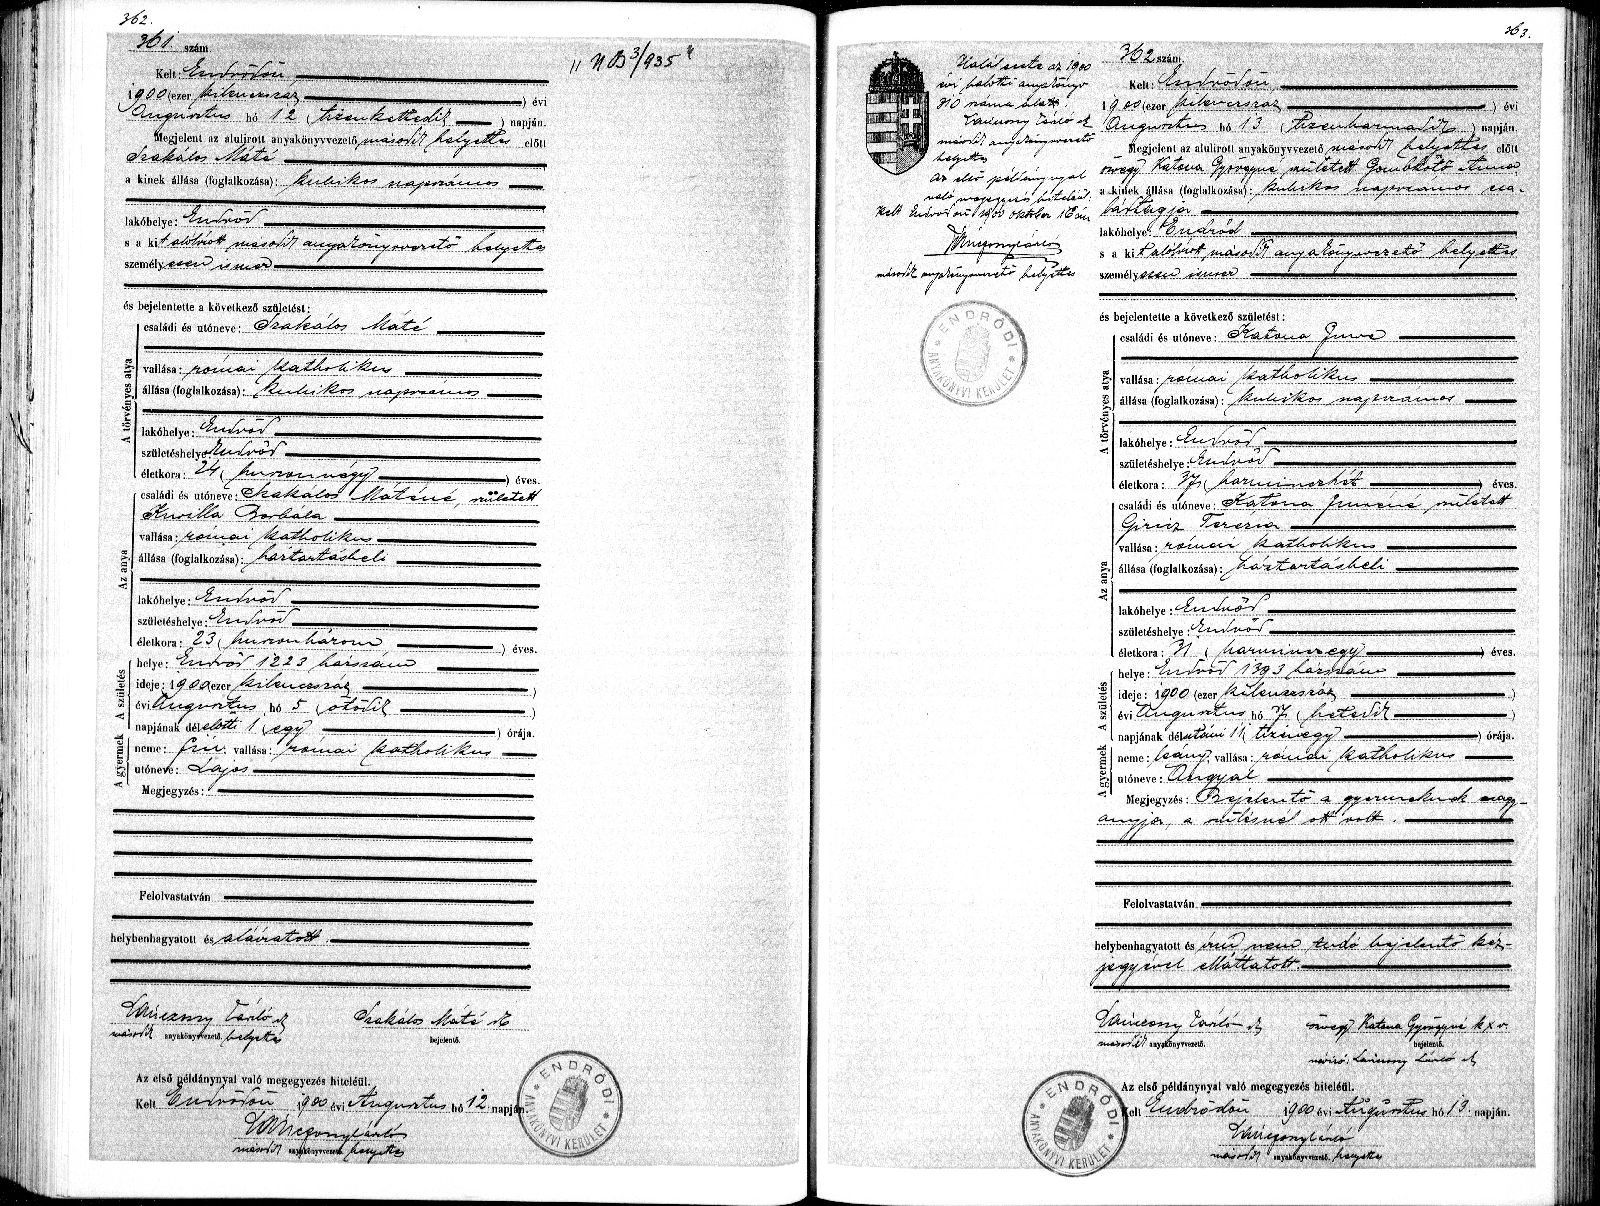 362.
361. szám.
Kelt: Endrődön
1900 (ezer kilenczszáz) évi
Augusztus hó 12 (tizenkettedik) napján.
Megjelent az alulirott anyakönyvvezető, második helyettes előtt
Szakálos Máté
a kinek állása (foglalkozása): kubikos napszámos
lakóhelye: Endrőd
s a kit alólirott második anyakönyvvezető helyettes
személyesen ismer
és bejelentette a következő születést:
A törvényes atya
családi és utóneve: Szakálos Máté
vallása: római katholikus
állása (foglalkozása): kubikos napszámos
lakóhelye: Endrőd
születéshelye: Endrőd
életkora: 24 (huszonnégy) éves.
Az anya
családi és utóneve: Szakálos Máténé, született
Kurilla Borbála
vallása: római katholikus
állása (foglalkozása): háztartásbeli
lakóhelye: Endrőd
születéshelye: Endrőd
életkora: 23 (huszonhárom) éves.
A születés
helye: Endrőd 1223 házszám
ideje: 1900 (ezer kilenczszáz)
évi Augusztus hó 5 (ötödik)
napjának délelőtti 1 (egy) órája.
A gyermek
neme: fiu; vallása: római katholikus
utóneve: Lajos
Megjegyzés:
Felolvastatván
helybenhagyatott és aláiratott.
második anyakönyvvezető. helyettes
Szakálos Máté sk
bejelentő.
Az első példánynyal való megegyezés hiteléül.
Kelt Endrődön 1900 évi Augusztus hó 12 napján.
második anyakönyvvezető. helyettes
ENDRŐDI
ANYAKÖNYVI KERÜLET
363.
Halál esete az 1900
évi halotti anyakönyv
310 száma alatt.
második anyakönyvvezető
helyettes
Az első példánynyal
való megegyezés hiteléül.
Kelt Endrődön 1900 október 16án
második anyakönyvvezető helyettes
ENDRŐDI
ANYAKÖNYVI KERÜLET
362 szám.
Kelt: Endrődön
1900 (ezer kilenczszáz) évi
Augusztus hó 13 (tizenharmadik) napján.
Megjelent az alulirott anyakönyvvezető második helyettes előtt
özvegy Katona Györgyné született Gombkötő Anna
a kinek állása (foglalkozása): kubikos napszámos csa-
ládtagja
lakóhelye: Endrőd
s a kit alólirott második anyakönyvvezető helyettes
személyesen ismer
és bejelentette a következő születést:
A törvényes atya
családi és utóneve: Katona Imre
vallása: római katholikus
állása (foglalkozása): kubikos napszámos
lakóhelye: Endrőd
születéshelye: Endrőd
életkora: 37 (harminczhét) éves.
Az anya
családi és utóneve: Katona Imréné, született
Giricz Terézia
vallása: római katholikus
állása (foglalkozása): háztartásbeli
lakóhelye: Endrőd
születéshelye: Endrőd
életkora: 31 (harminczegy) éves.
A születés
helye: Endrőd 1393 házszám
ideje: 1900 (ezer kilenczszáz)
évi Augusztus hó 7 (hetedik)
napjának délutáni 11 (tizenegy) órája.
A gyermek
neme: leány; vallása: római katholikus
utóneve: Angyal
Megjegyzés: Bejelentő a gyermeknek nagy-
anyja, a szülésnél ott volt.
Felolvastatván
helybenhagyatott és irni nem tudó bejelentő kéz-
jegyével elláttatott.
második anyakönyvvezető.
özvegy Katona Györgyné k x v.
bejelentő.
Az első példánynyal való megegyezés hiteléül.
Kelt Endrődön 1900 évi Augusztus hó 13. napján.
második anyakönyvvezető. helyettes
ENDRŐDI
ANYAKÖNYVI KERÜLET